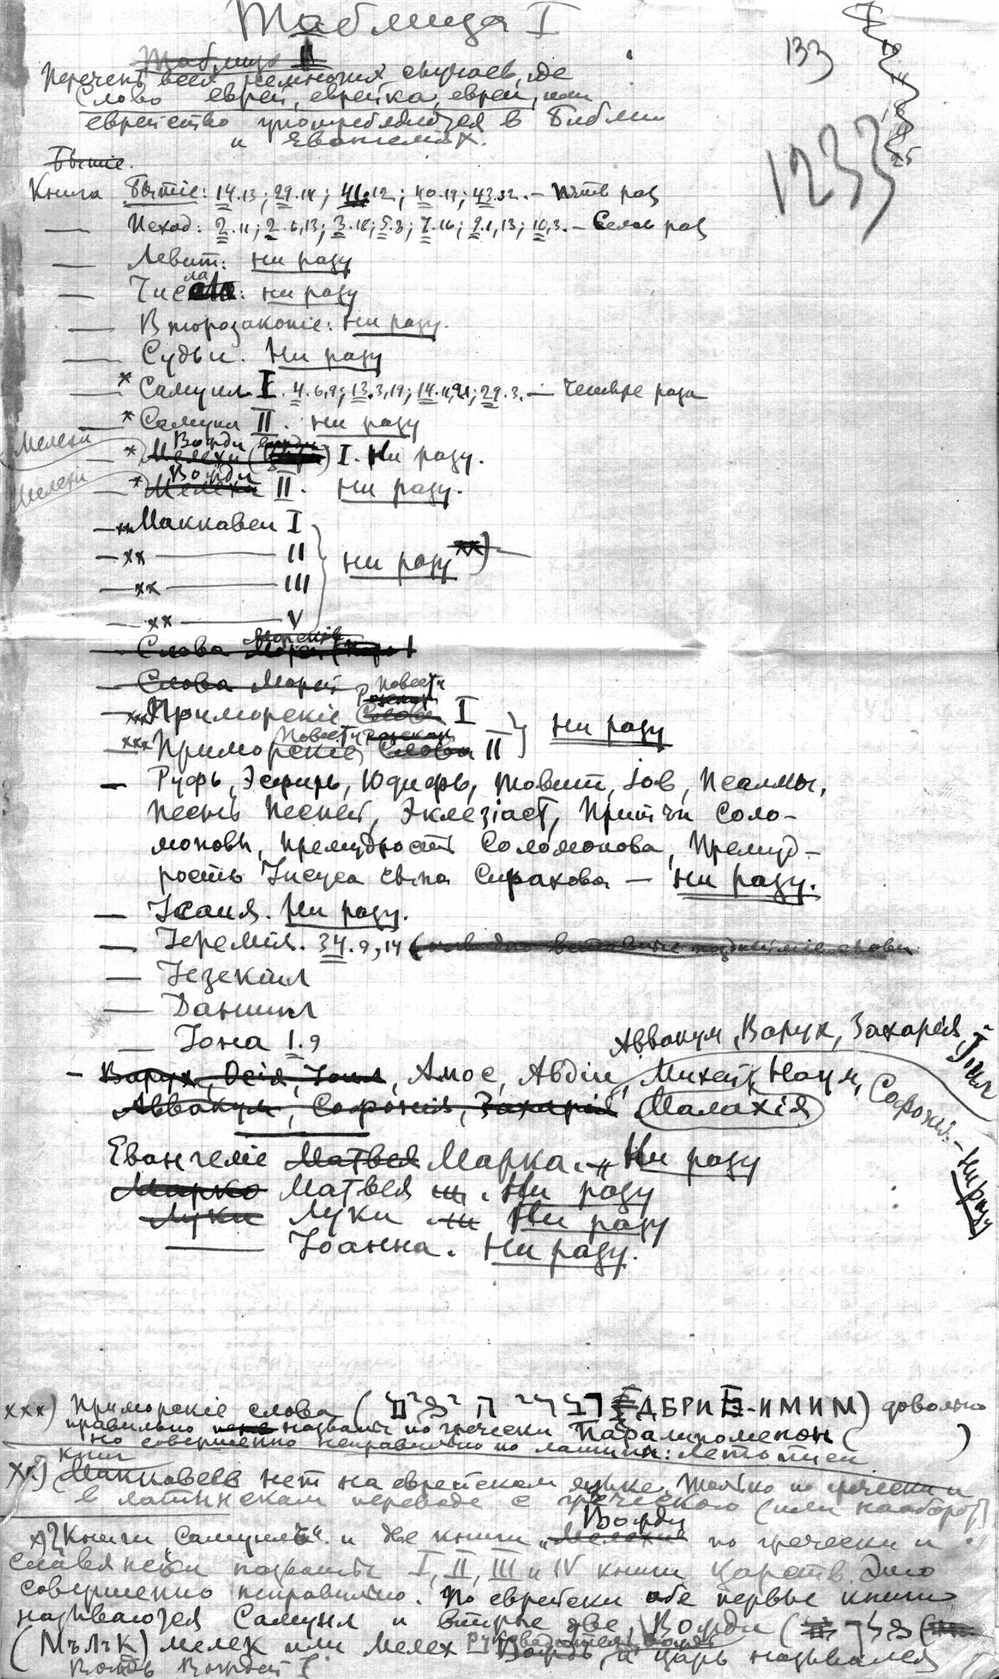 Таблица I
133
1233
Таблица II
Перечень всех немногих случаев, где
слово еврей, еврейка, евреи, или
еврейство употребляется в Библии
и Евангелиях.
Бытіе.
Книга Бытіе: 14.13; 29.14; 41.12; 40.19; 43.32. — Пять раз
— Исход: 2.11; 2.6,13; 3.18; 5.3; 7.16; 9.1,13; 10.3. — Семь раз
— Левит: ни разу
— Числа: ни разу
— Второзаконіе: ни разу.
— Судьи. Ни разу
— * Самуил I. 4.6,9; 13.3,19; 14.11,21; 29.3. — Четыре раза
— * Самуил II. ни разу
Мелехи
— * Мелехи Вожди I. Ни разу.
Мелехи
— * Мелехи Вожди II. Ни разу.
— ** Маккавеи I
— ** — II
ни разу **)
— ** — III
— ** — V
— Слова Морей
— Слова Морей
— *** Приморскіе Слова Повести I
ни разу
*** Приморскіе Слова Повести II
— Руфь, Эсфирь, Юдифь, Товит, Іов, Псалмы,
Песнь Песней, Эклезіаст, Притчи Соло-
моновы, Премудрость Соломонова, Премуд-
рость Іисуса сына Сирахова — ни разу.
— Исаия. Ни разу.
— Іеремія. 34.9,14
— Іезекіил
— Даниил
— Іона 1.9
Аввакум, Варух, Захарія, Іоил
— Варух, Осія, Іоил, Амос, Авдій, Михей, Наум, Софонія — ни разу
Аввакум, Софонія, Захарія Малахія
Евангеліе Матвея Марка. Ни разу
Марка Матвея. Ни разу
Луки Луки Ни разу
— Іоанна. Ни разу.
ххх) Приморскіе слова ( ДБРИ -ИМИМ) довольно
правильно названы по гречески Паралипоменон ( )
но совершенно неправильно по латыни: летописи
книг
хх) Маккавеев нет на еврейском языке. Только по гречески и
в латинском переводе с греческого (или наоборот)
х) Книги „Самуилъ“ и две книги „Мелехи Вожди по гречески и
славянски названы I, II, III и IV книги царств. Это
совершенно неправильно. По еврейски обе первые книги
называются Самуил и вторые две, Вожди (מלך
(МъЛъК) мелек или мелех Вождь, а царь назывался
Вождь Вождей